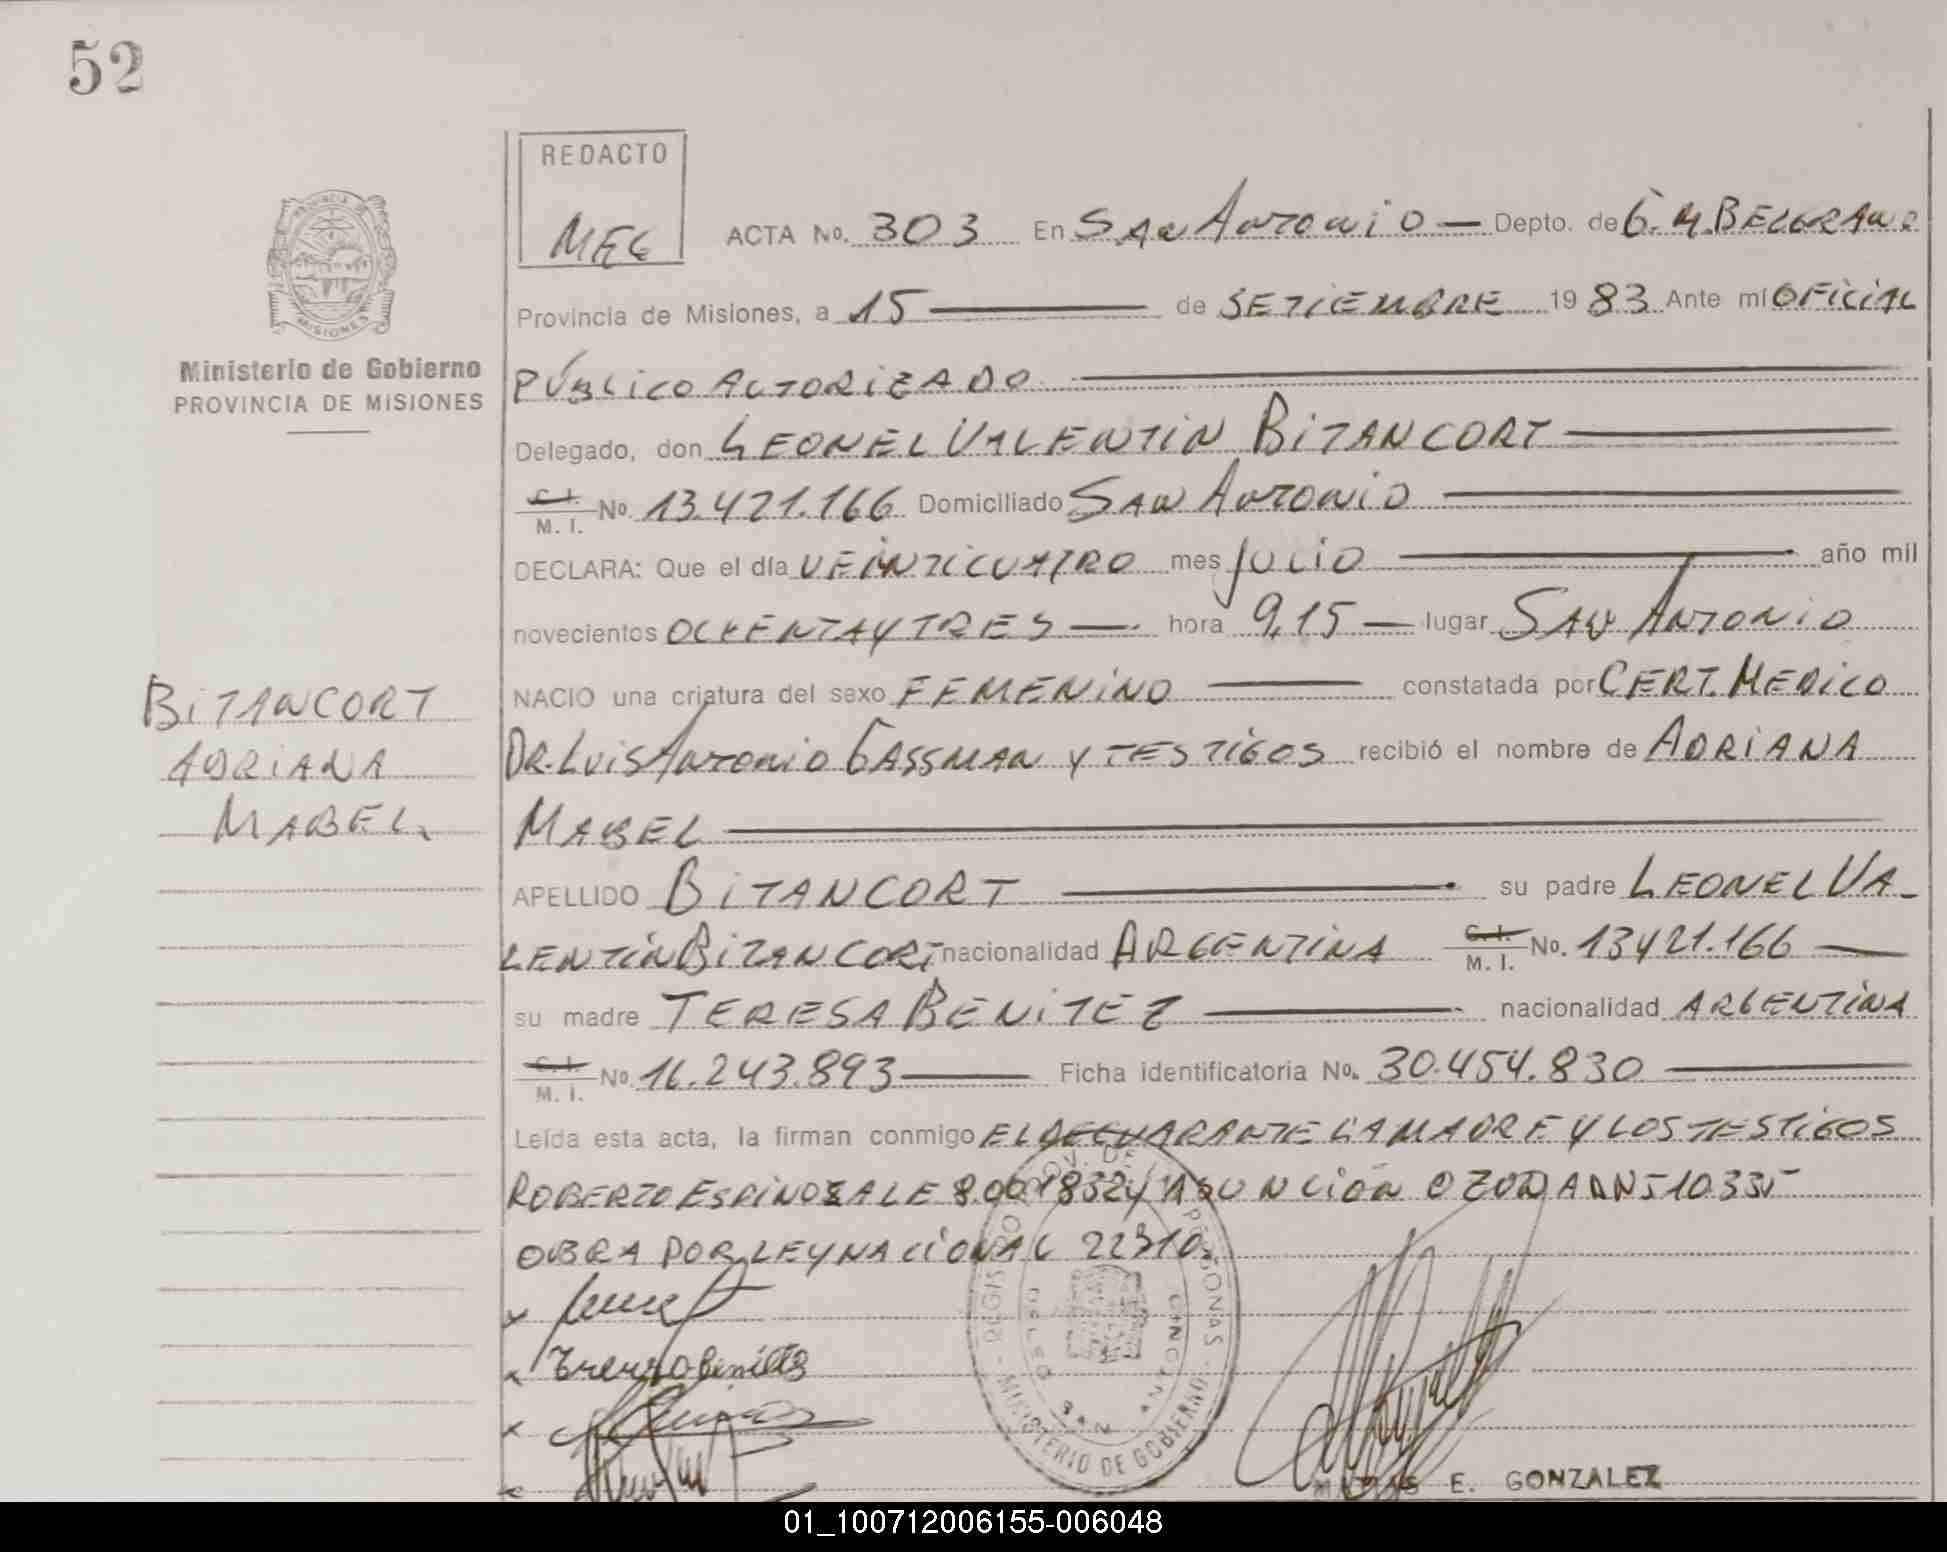 52
REDACTO
MEG
ACTA No. 303 En San Antonio — Depto. de G. M. BELGRANO
Provincia de Misiones, a 15 de SETIEMBRE 19 83 Ante mí OFICIAL
PÚBLICO AUTORIZADO
Ministerio de Gobierno
PROVINCIA DE MISIONES
Delegado, don LEONEL VALENTIN BITANCORT
C. I. / M. I. No. 13.421.166 Domiciliado SAN ANTONIO
DECLARA: Que el día VEINTICUATRO mes JULIO año mil
novecientos OCHENTA Y TRES — hora 9,15 — lugar SAN ANTONIO
NACIO una criatura del sexo FEMENINO constatada por CERT. MEDICO
BITANCORT
ADRIANA
MABEL.
DR. LUIS ANTONIO GASSMAN Y TESTIGOS recibió el nombre de ADRIANA
MABEL
APELLIDO BITANCORT su padre LEONEL VA-
LENTIN BITANCORT nacionalidad ARGENTINA C. I. / M. I. No. 13421.166
su madre TERESA BENITEZ nacionalidad ARGENTINA
C. I. / M. I. No. 16.243.893 Ficha identificatoria No. 30.454.830
Leída esta acta, la firman conmigo EL DECLARANTE LA MADRE Y LOS TESTIGOS
ROBERTO ESPINOZA LE 8.001832 y ASUNCIÓN OZUNA DNI 10.335
OBRA POR LEY NACIONAL 22310.
MINISTERIO DE GOBIERNO
SAN ANTONIO
E. GONZALEZ
01_100712006155-006048